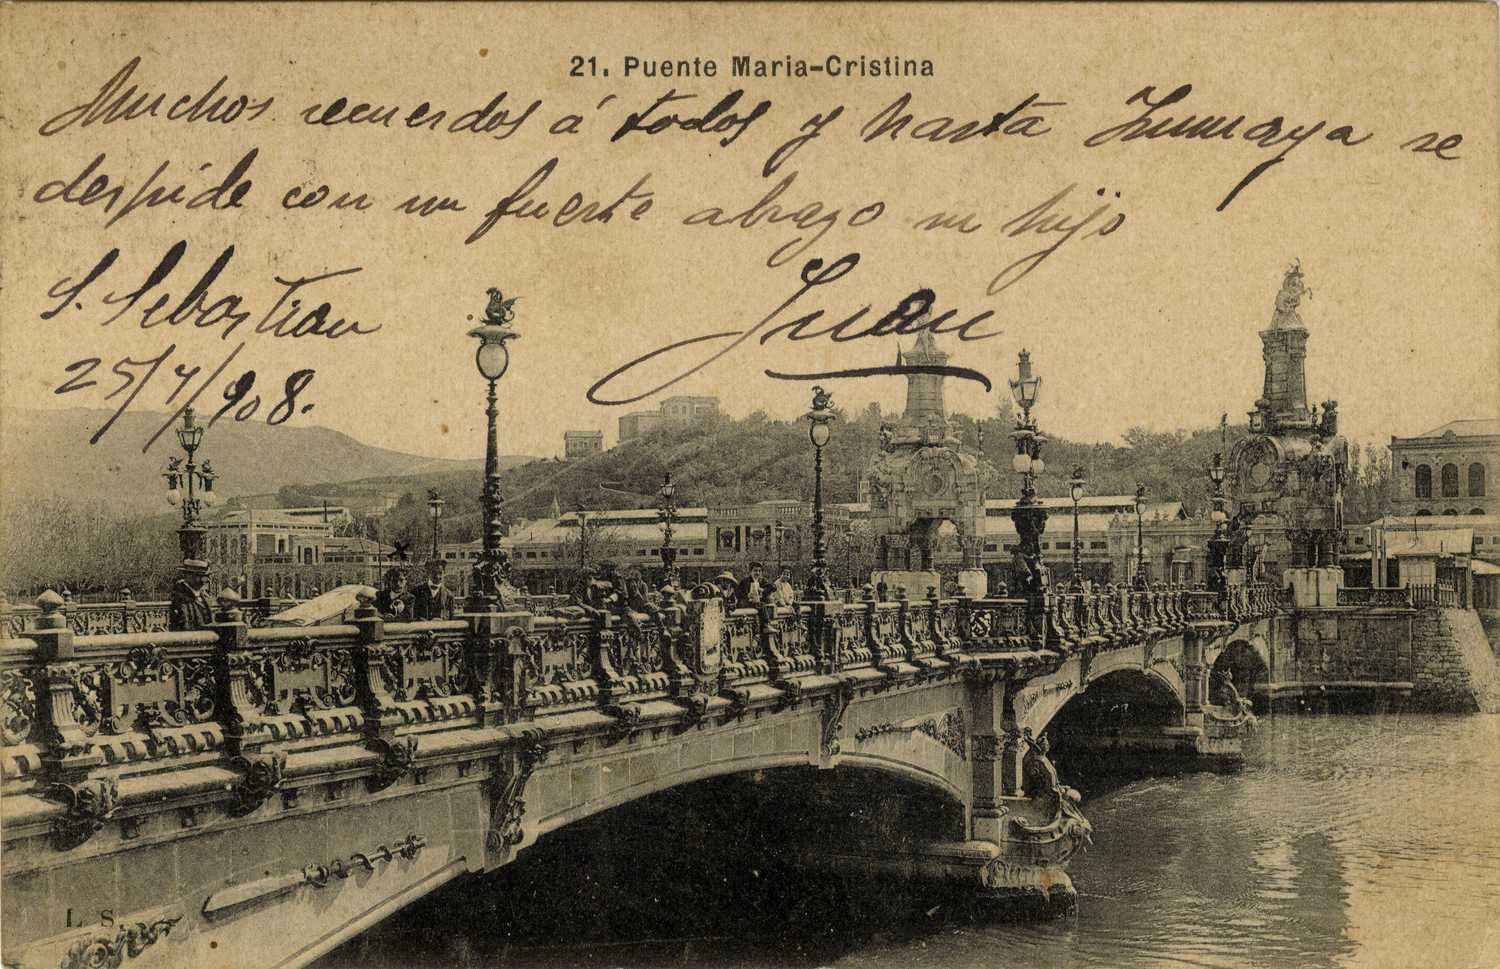 21. Puente Maria-Cristina
Muchos recuerdos á todos y hasta Zumaya se
despide con un fuerte abrazo su hijo
Juan
S. Sebastian
25/7/908.
L. S.